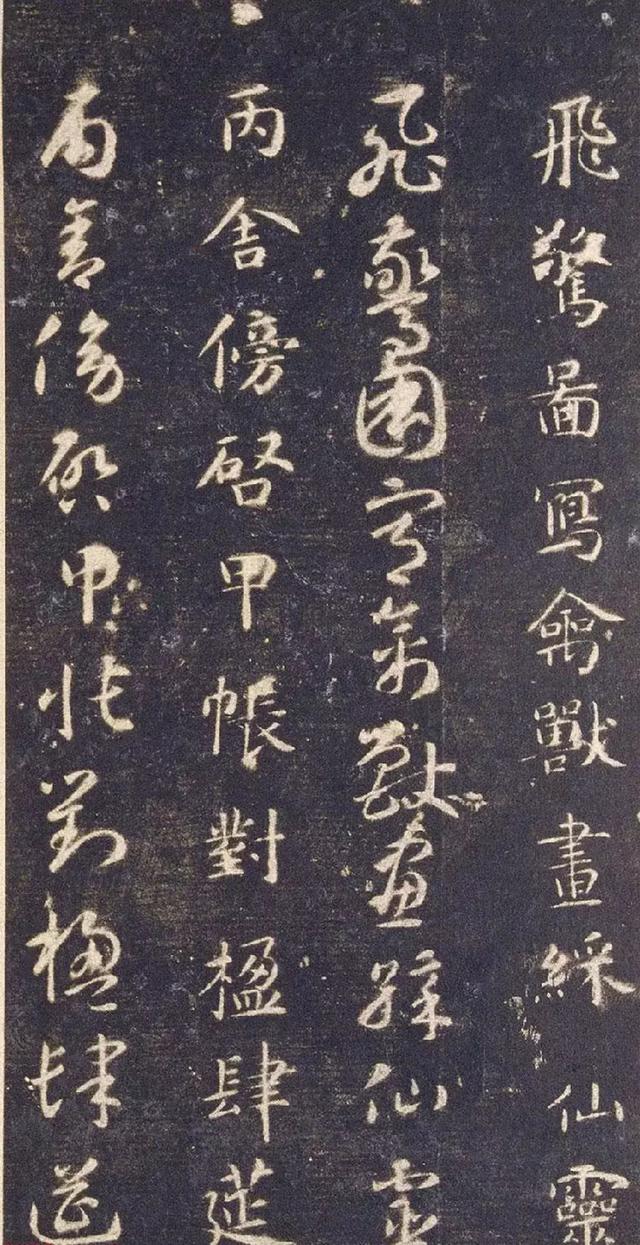 飛驚圖寫禽獸畫綵仙靈
飛驚圖寫禽獸畫綵仙靈
丙舍傍啓甲帳對楹肆莚
丙舍傍啓甲帳對楹肆莚